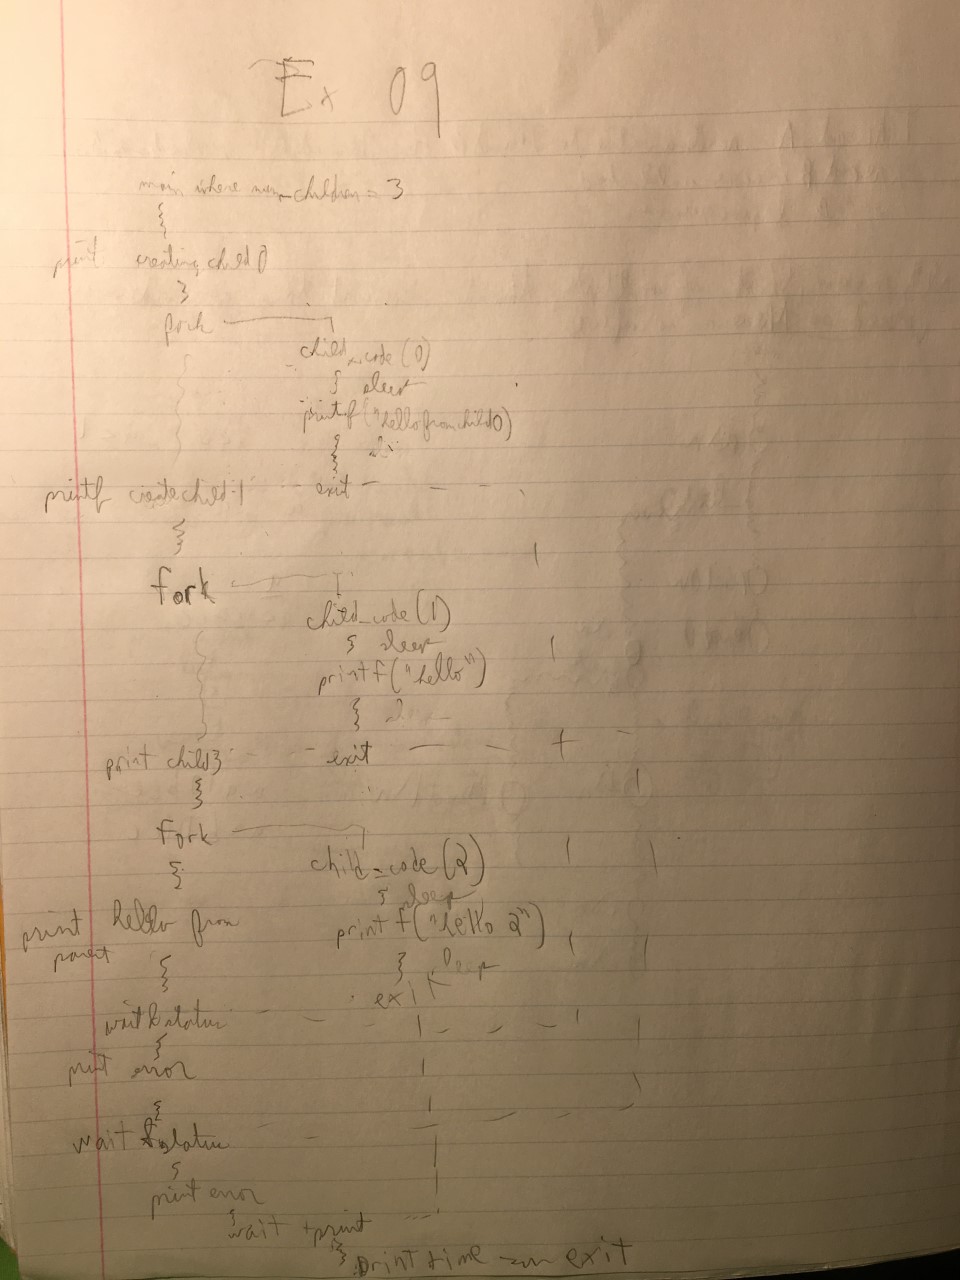 Ex 09
main where num_children = 3
print creating child 0
fork
child_code (0)
sleep
printf ("hello from child 0)
exit
printf create child 1
fork
child_code (1)
sleep
printf ("hello")
exit
print child 3
fork
child_code (2)
sleep
print hello from
parent
printf ("hello 2")
sleep
exit
wait & status
print error
wait & status
print error
wait + print
print time exit